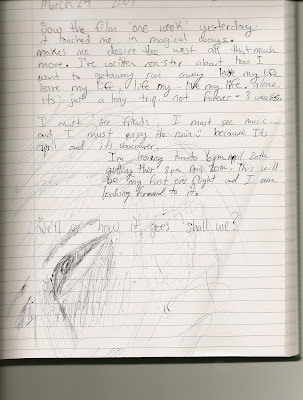 March 24 2009
Saw the film 'one week' yesterday.
it touched me in magical ways.
makes me desire the west all that much
more. I've written non-stop about how I
want to getaway run away my life
leave my life, life my... live my life. alone.
its just a long trip. not forever - 3 weeks.
I must see friends, I must see music...
and I must enjoy the rain... because its
April and its vancouver.
I'm leaving toronto 6pm april 20th
getting there 8pm April 20th. This will
be my first ever flight and I am
looking forward to it.
We'll see how it goes shall we?